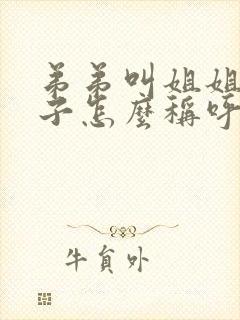 弟弟叫姐姐
子怎麼稱呼
牛貟外